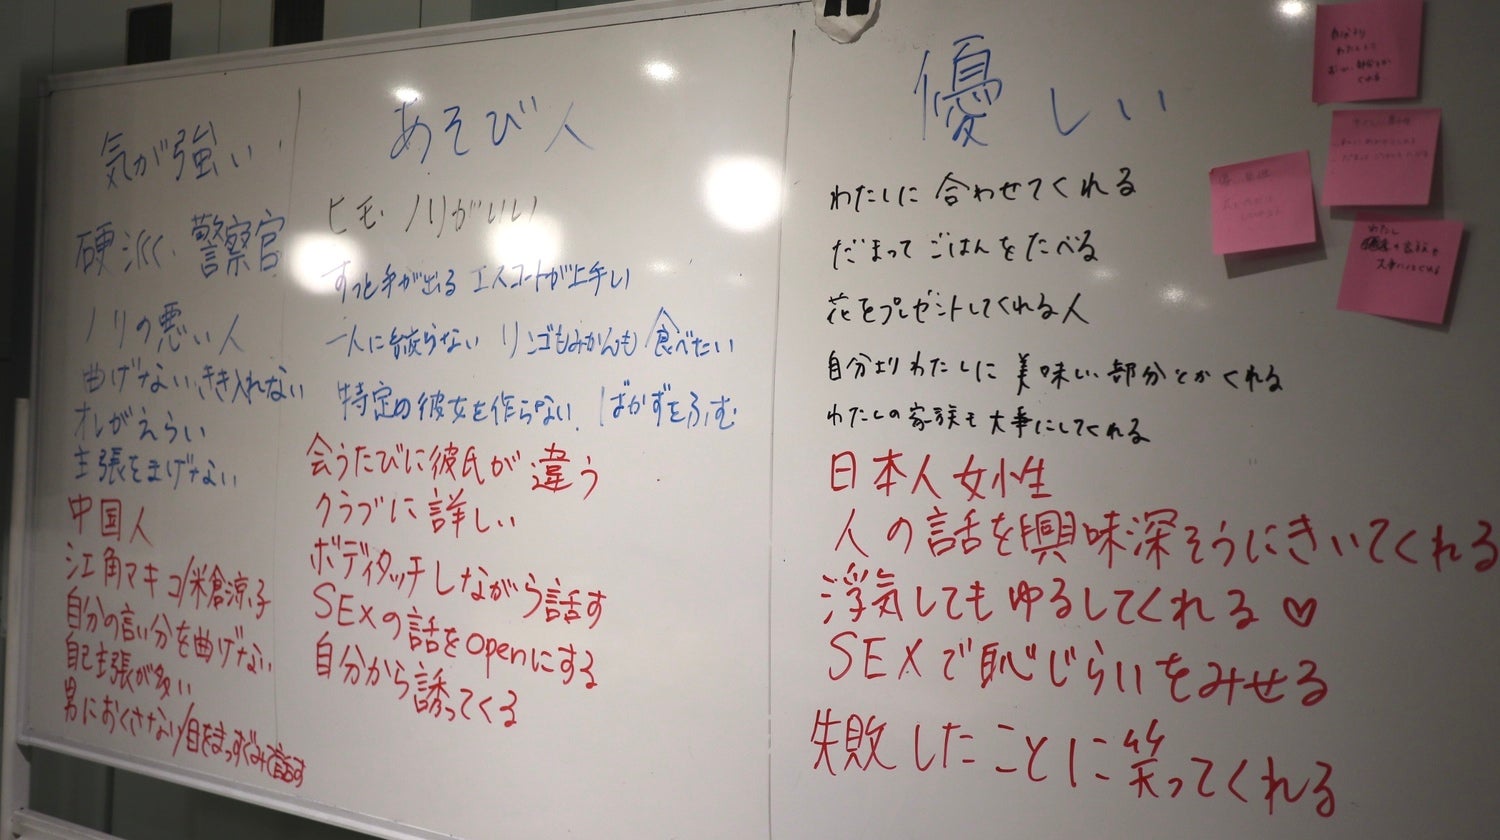 気が強い
硬派、警察官
ノリの悪い人
曲げない、きき入れない
オレがえらい
主張をまげない
中国人
江角マキコ/米倉涼子
自分の言い分を曲げない
自己主張が多い
男におくさない/目をまっすぐみて話す
あそび人
ヒモ・ノリがいい
すっと手が出る エスコートが上手い
一人に絞らない リンゴもみかんも食べたい
特定の彼女を作らない、ばかずをふむ
会うたびに彼氏が違う
クラブに詳しい
ボディタッチしながら話す
SEXの話をopenにする
自分から誘ってくる
優しい
わたしに合わせてくれる
だまってごはんをたべる
花をプレゼントしてくれる人
自分よりわたしに美味しい部分とかくれる
わたしの家族も大事にしてくれる
日本人女性
人の話を興味深そうにきいてくれる
浮気してもゆるしてくれる♡
SEXで恥じらいをみせる
失敗したことに笑ってくれる
自分より
わたしに
くれる
わたし
の家族も
大事にしてくれる